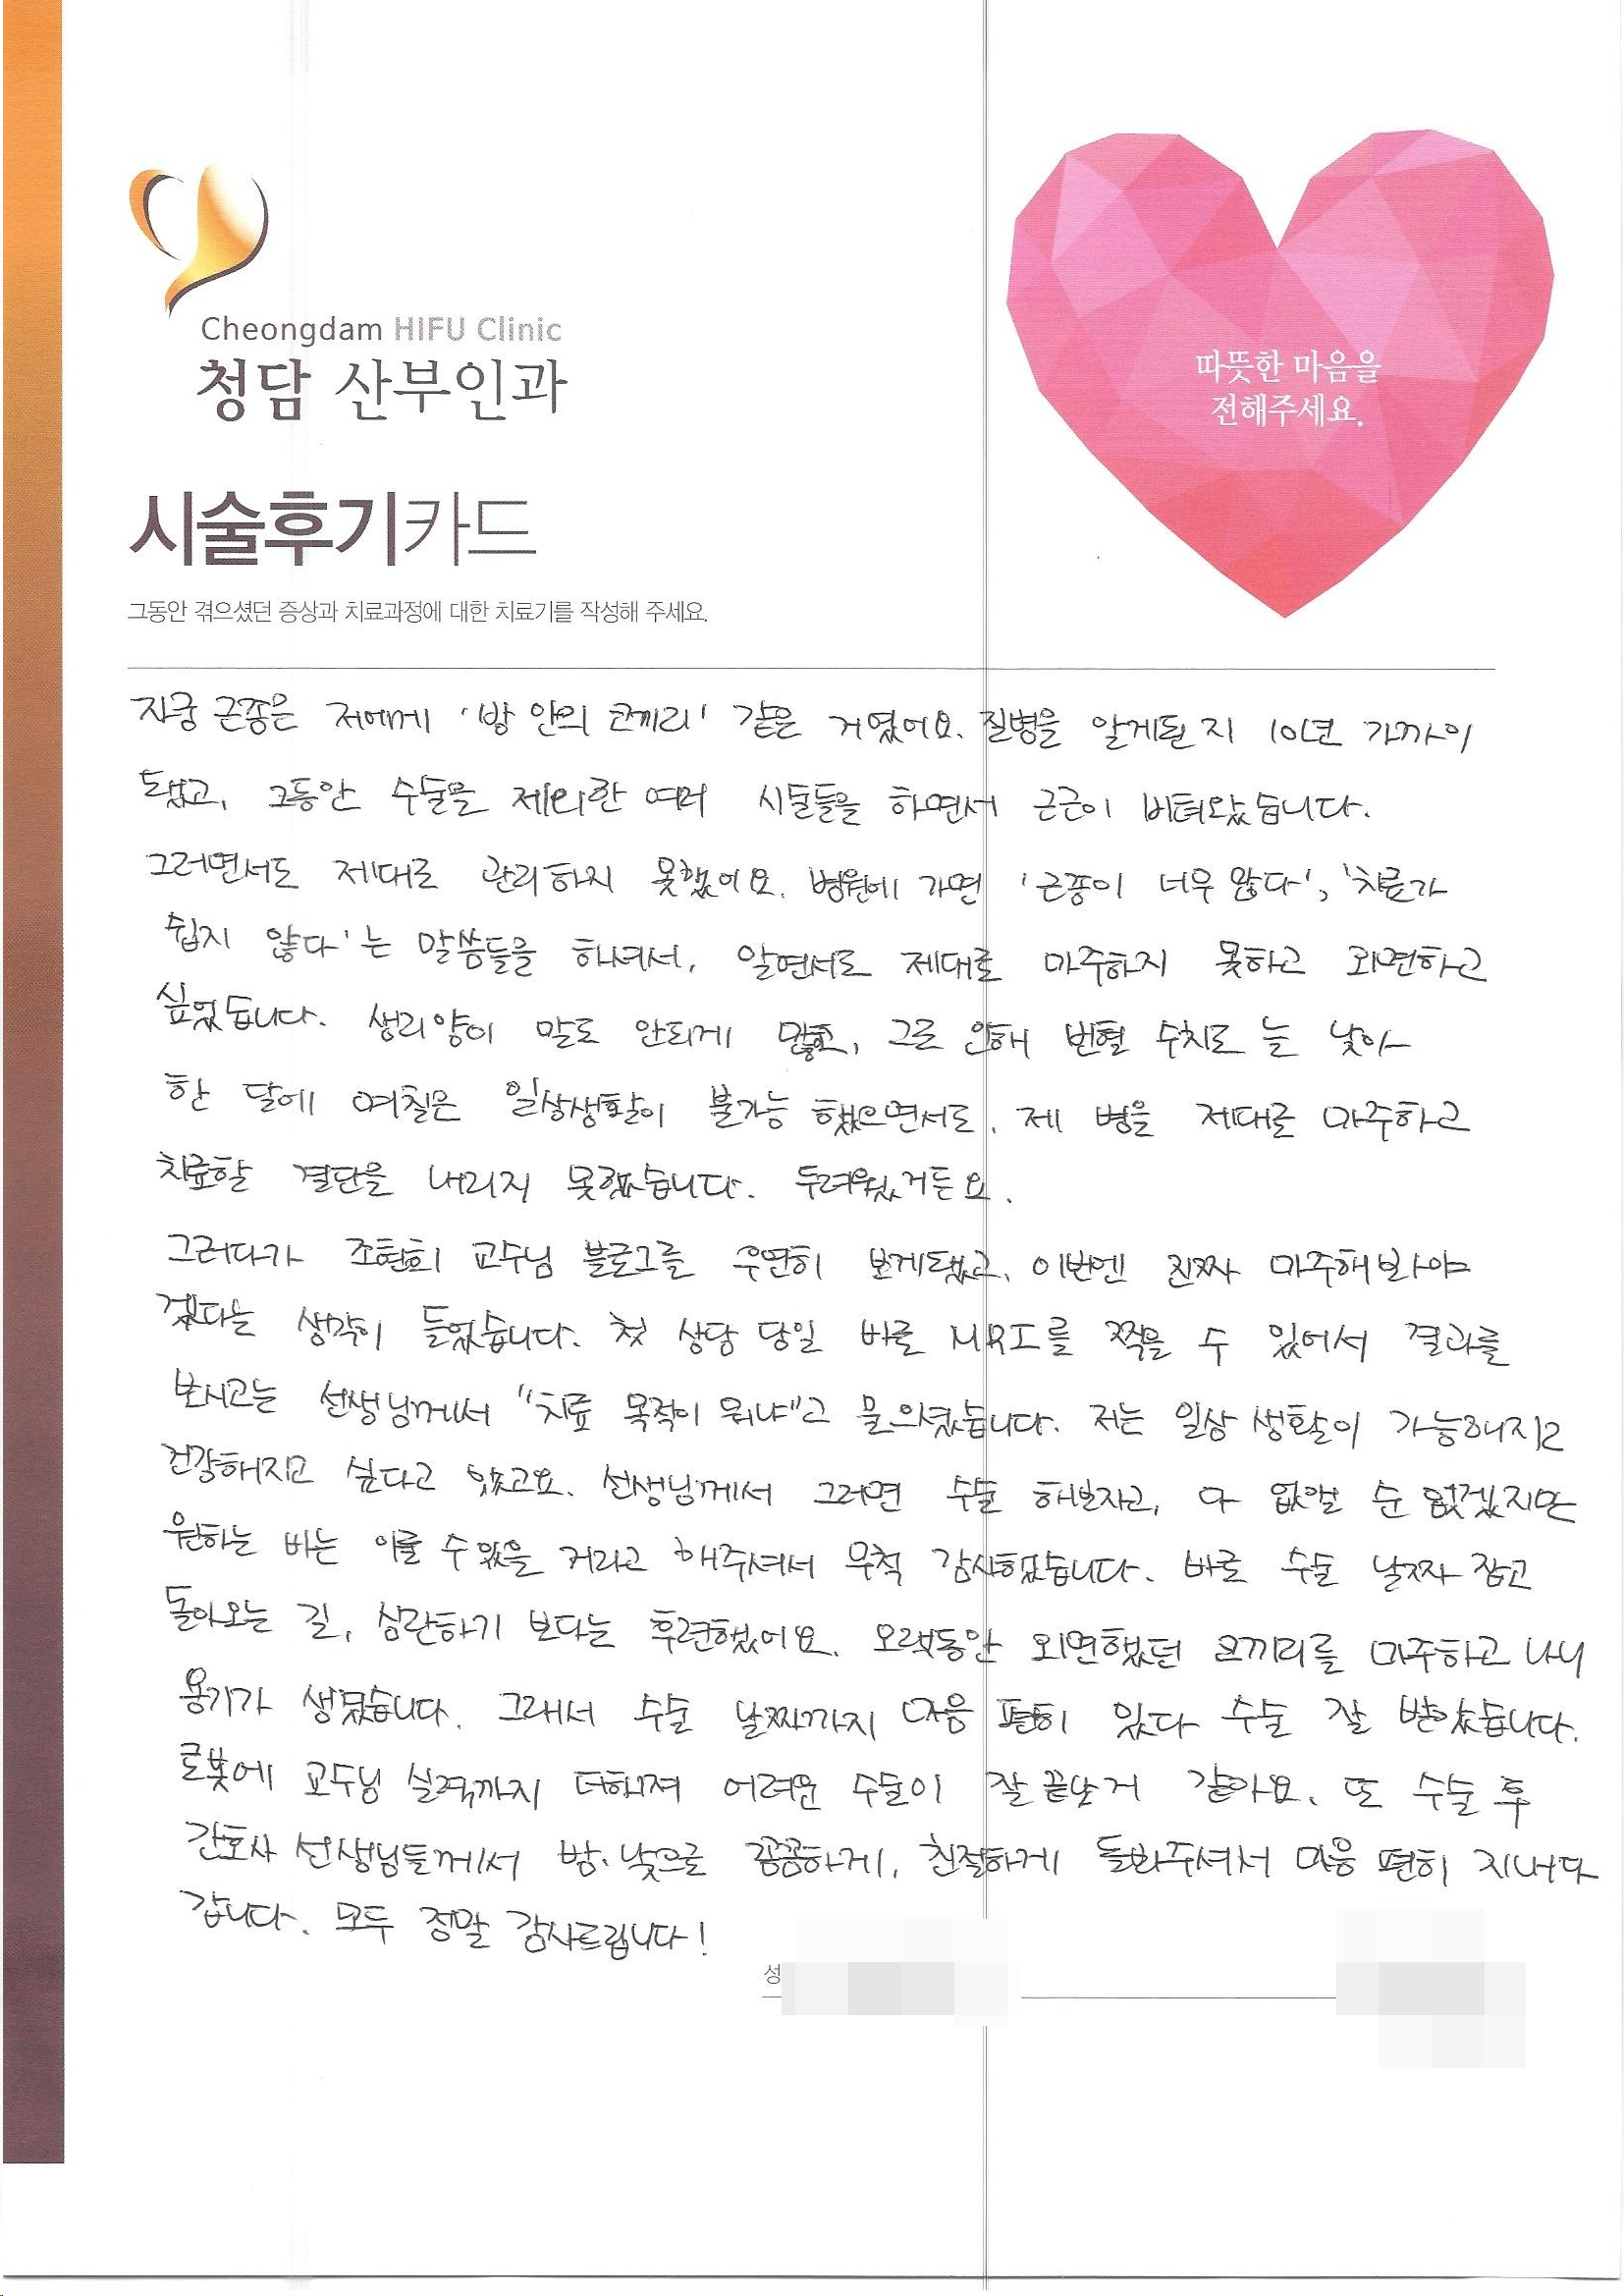 Cheongdam HIFU Clinic
청담 산부인과
따뜻한 마음을
전해주세요.
시술후기카드
그동안 겪으셨던 증상과 치료과정에 대한 치료기를 작성해 주세요.
자궁 근종은 저에게 '방 안의 코끼리' 같은 거였어요. 질병을 알게된 지 10년 가까이
됐고, 그동안 수술을 제외한 여러 시술들을 하면서 근근이 버텨왔습니다.
그러면서도 제대로 관리하지 못했어요. 병원에 가면 '근종이 너무 많다', '치료가
쉽지 않다'는 말씀들을 하셔서, 알면서도 제대로 마주하지 못하고 외면하고
싶었습니다. 생리양이 말도 안되게 많고, 그로 인해 빈혈 수치도 늘 낮아
한 달에 며칠은 일상생활이 불가능 했으면서도, 제 병을 제대로 마주하고
치료할 결단을 내리지 못했습니다. 두려웠거든요.
그러다가 조현희 교수님 블로그를 우연히 보게됐고, 이번엔 진짜 마주해봐야
겠다는 생각이 들었습니다. 첫 상담 당일 바로 MRI를 찍을 수 있어서 결과를
보시고는 선생님께서 "치료 목적이 뭐냐"고 물으셨습니다. 저는 일상 생활이 가능해지고
건강해지고 싶다고 했고요. 선생님께서 그러면 수술 해보자고, 다 없앨 순 없겠지만
원하는 바는 이룰 수 있을 거라고 해주셔서 무척 감사했습니다. 바로 수술 날짜 잡고
돌아오는 길, 심란하기 보다는 후련했어요. 오랫동안 외면했던 코끼리를 마주하고 나니
용기가 생겼습니다. 그래서 수술 날짜까지 마음 편히 있다 수술 잘 받았습니다.
로봇에 교수님 실력까지 더해져 어려운 수술이 잘 끝난 거 같아요. 또 수술 후
간호사 선생님들께서 밤·낮으로 꼼꼼하게, 친절하게 돌봐주셔서 마음 편히 지내다
갑니다. 모두 정말 감사드립니다!
성